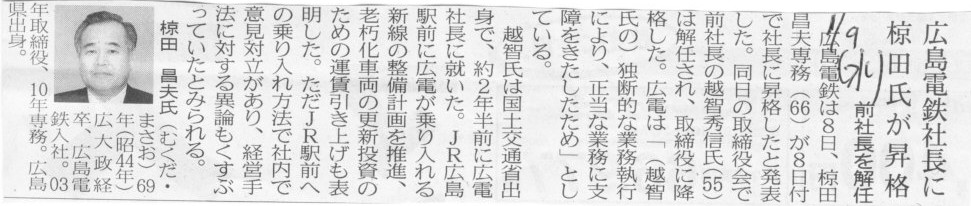 広島電鉄社長に
椋田氏が昇格
前社長を解任
1/9
広島電鉄は8日、椋田
昌夫専務(66)が8日付
で社長に昇格したと発表
した。同日の取締役会で
前社長の越智秀信氏(55)
は解任され、取締役に降
格した。広電は「(越智
氏の)独断的な業務執行
により、正当な業務に支
障をきたしたため」とし
ている。
越智氏は国土交通省出
身で、約2年半前に広電
社長に就いた。JR広島
駅前に広電が乗り入れる
新線の整備計画を推進、
老朽化車両の更新投資の
ための運賃引き上げも表
明した。ただJR駅前へ
の乗り入れ方法で社内で
意見対立があり、経営手
法に対する異論もくすぶ
っていたとみられる。
椋田 昌夫氏(むくだ・
まさお)69
年(昭44年)
広大政経
卒、広島電
鉄入社。03
年取締役、10年専務。広島
県出身。